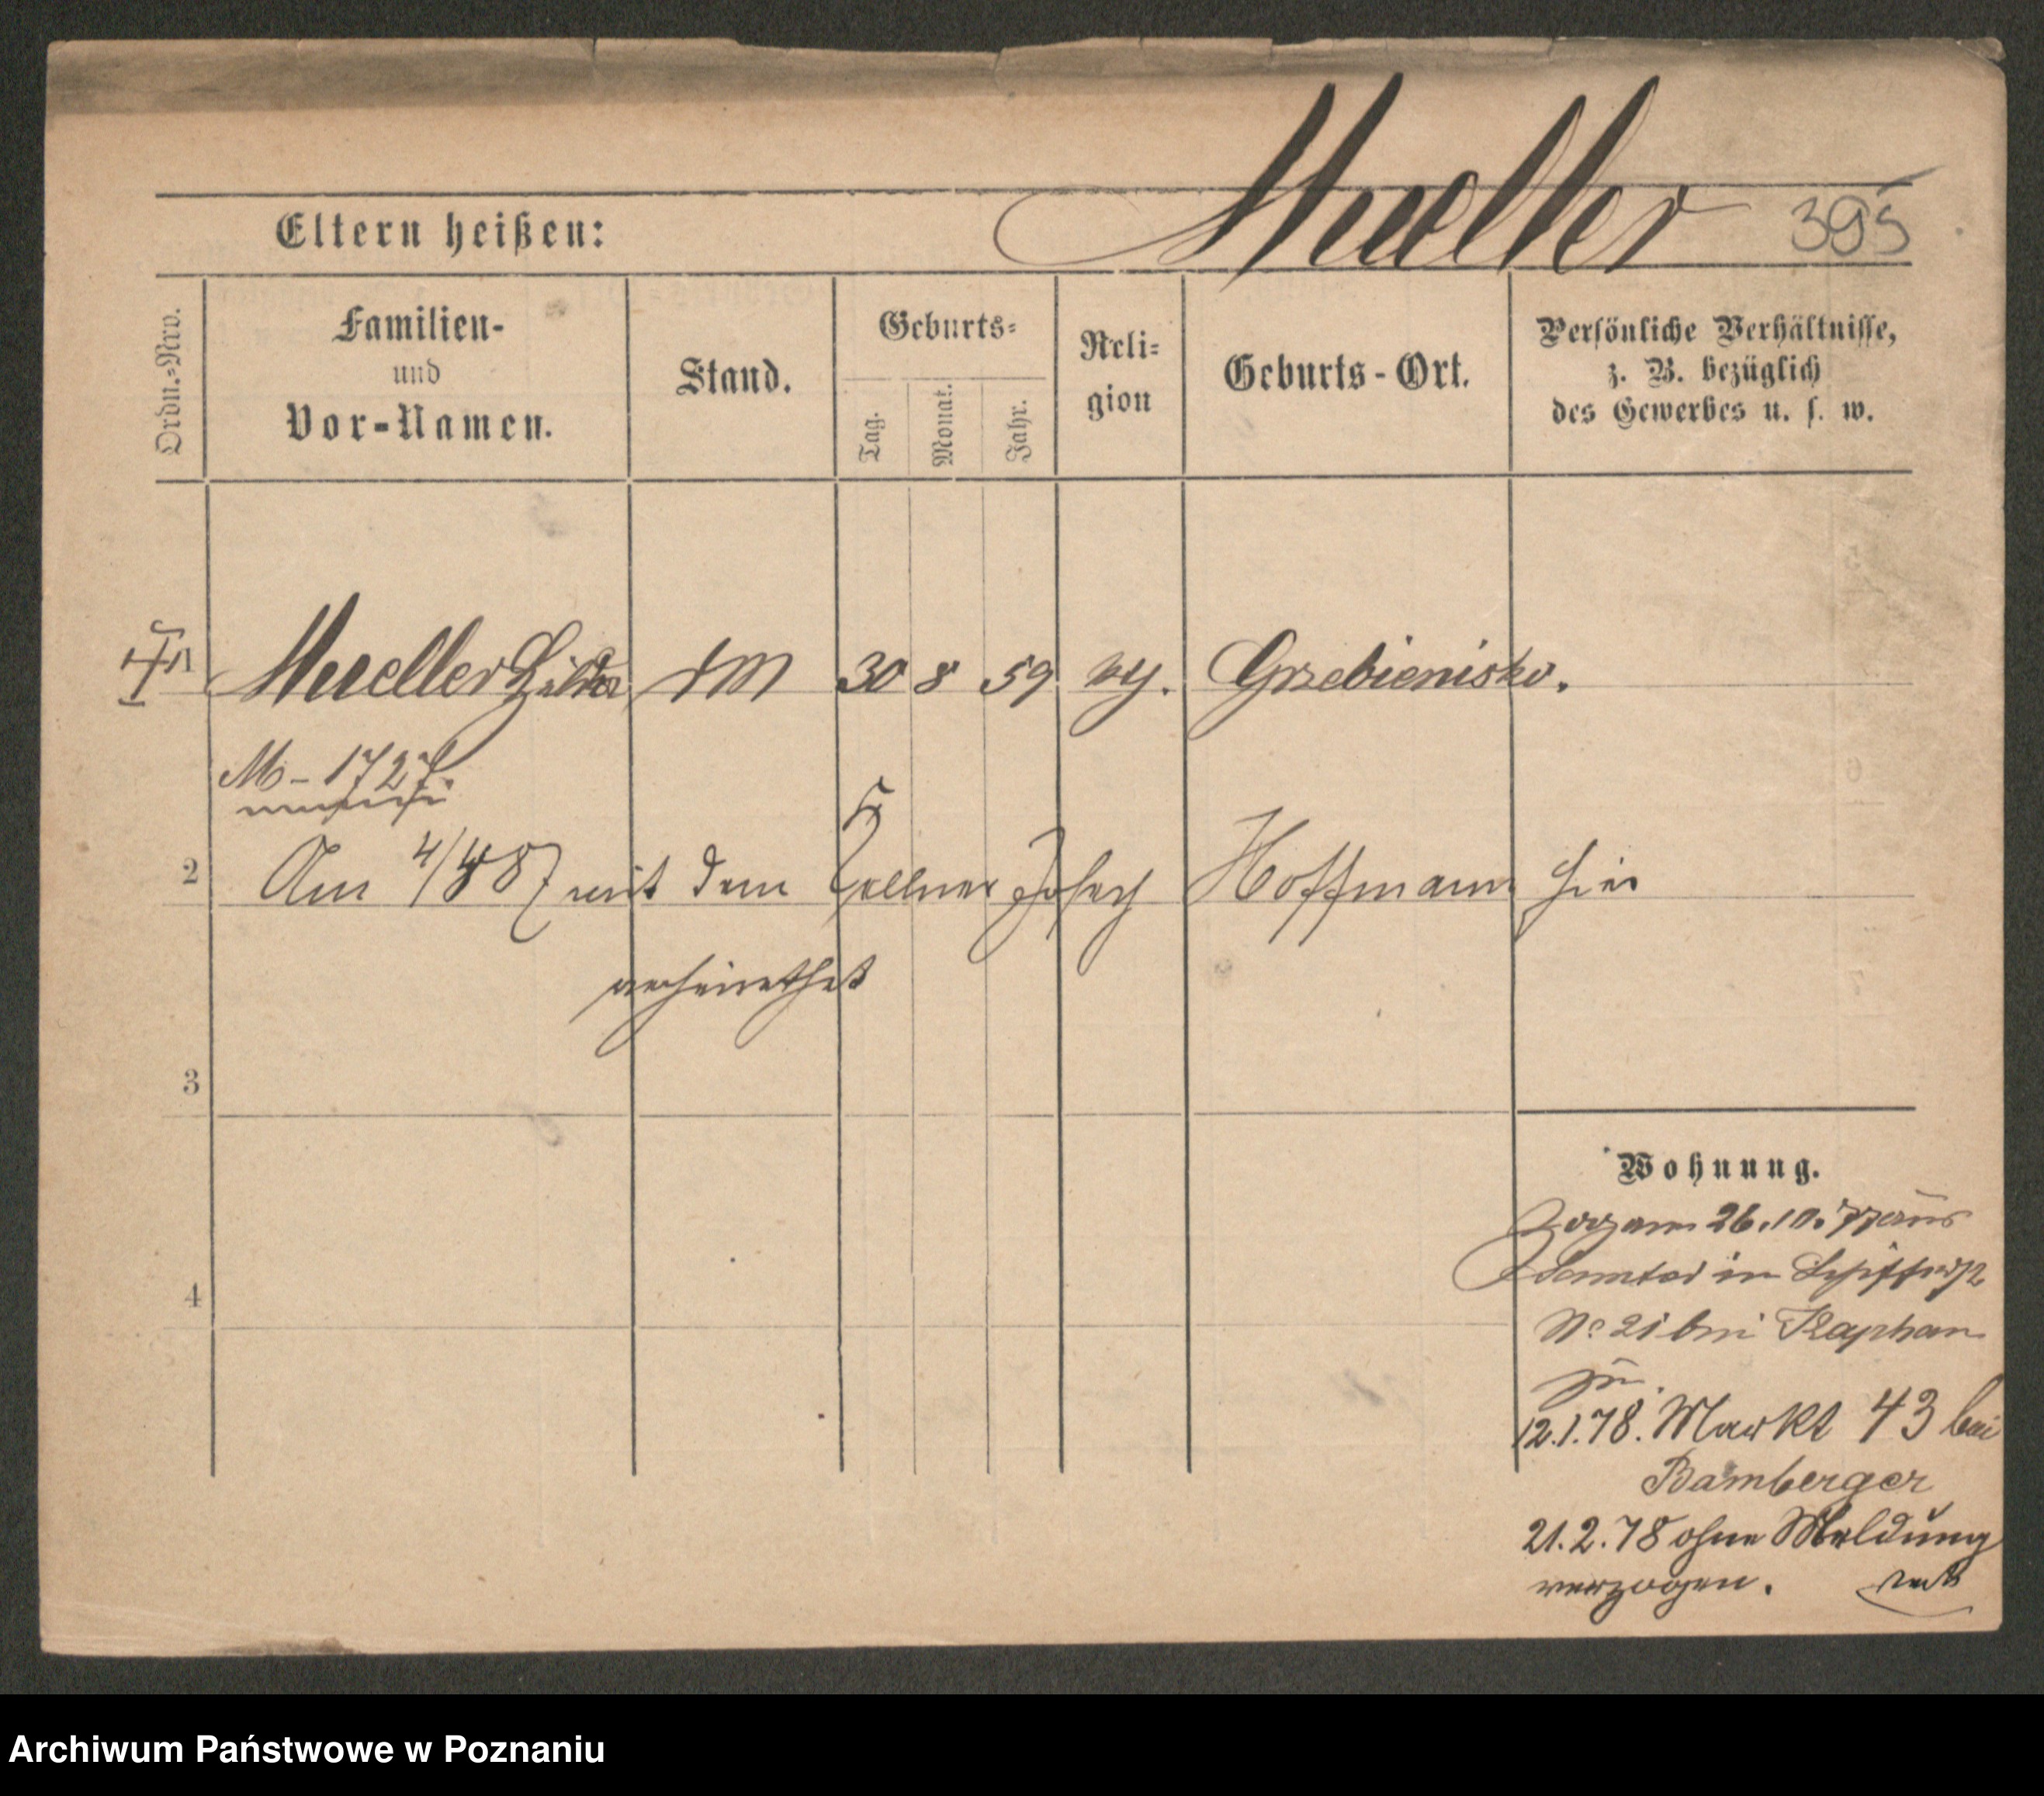 Mueller 395
Eltern heißen:
Ordn.-Nro.
Familien-
und
Vor-Namen.
Stand.
Geburts-
Tag.
Monat.
Jahr.
Reli-
gion
Geburts-Ort.
Persönliche Verhältnisse,
z. B. bezüglich
des Gewerbes u. s. w.
1 Mueller DM 30 8 59 Grzebienisko.
M-1727.
2 Am 4/4 87 mit dem Kellner Joseph Hoffmann hier
verheirathet
3
4
Wohnung.
Zog am 26.10.77 aus
Samter in Schifferstr
No 21 bei Kaphan
zu.
12.1.78. Markt 43 bei
Bamberger
21.2.78 ohne Meldung
verzogen.
Archiwum Państwowe w Poznaniu